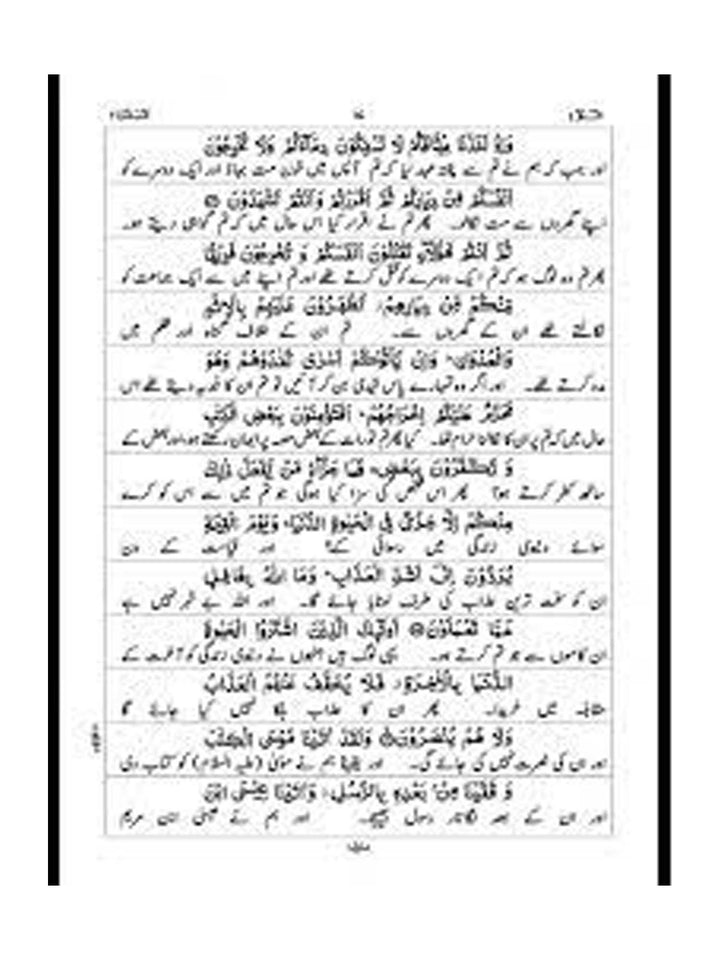 البقرة ٢
وَإِذْ أَخَذْنَا مِيثَاقَكُمْ لَا تَسْفِكُونَ دِمَاءَكُمْ وَلَا تُخْرِجُونَ
اور جب کہ ہم نے تم سے پختہ عہد لیا کہ تم آپس میں خون مت بہاؤ اور ایک دوسرے کو
أَنْفُسَكُمْ مِنْ دِيَارِكُمْ ثُمَّ أَقْرَرْتُمْ وَأَنْتُمْ تَشْهَدُونَ
اپنے گھروں سے مت نکالو۔ پھر تم نے اقرار کیا اس حال میں کہ تم گواہی دیتے ہو۔
ثُمَّ أَنْتُمْ هَؤُلَاءِ تَقْتُلُونَ أَنْفُسَكُمْ وَ تُخْرِجُونَ فَرِيقًا
پھر تم وہ لوگ ہو کہ تم ایک دوسرے کو قتل کرتے تھے اور تم اپنے میں سے ایک جماعت کو
مِنْكُمْ مِنْ دِيَارِهِمْ تَظَاهَرُونَ عَلَيْهِمْ بِالْإِثْمِ
نکالتے تھے ان کے گھروں سے۔ تم ان کے خلاف گناہ اور ظلم میں
وَالْعُدْوَانِ وَإِنْ يَأْتُوكُمْ أُسَارَى تُفَادُوهُمْ وَهُوَ
مدد کرتے تھے۔ اور اگر وہ تمہارے پاس قیدی بن کر آئیں تو تم ان کا فدیہ دیتے تھے اس
مُحَرَّمٌ عَلَيْكُمْ إِخْرَاجُهُمْ أَفَتُؤْمِنُونَ بِبَعْضِ الْكِتَابِ
حال میں کہ تم پر ان کا نکالنا حرام تھا۔ کیا پھر تم تورات کے بعض حصہ پر ایمان رکھتے ہو اور بعض کے
وَ تَكْفُرُونَ بِبَعْضٍ فَمَا جَزَاءُ مَنْ يَفْعَلُ ذَلِكَ
ساتھ کفر کرتے ہو؟ پھر اس شخص کی سزا کیا ہوگی جو تم میں سے اس کو کرے
مِنْكُمْ إِلَّا خِزْيٌ فِي الْحَيَوةِ الدُّنْيَا وَيَوْمَ الْقِيَمَةِ
سوائے دنیوی زندگی میں رسوائی کے؟ اور قیامت کے دن
يُرَدُّونَ إِلَى أَشَدِّ الْعَذَابِ وَمَا اللَّهُ بِغَافِلٍ
ان کو سخت ترین عذاب کی طرف لوٹایا جائے گا۔ اور اللہ بے خبر نہیں ہے
عَمَّا تَعْمَلُونَ أُولَئِكَ الَّذِينَ اشْتَرَوُا الْحَيَوةَ
ان کاموں سے جو تم کرتے ہو۔ یہی لوگ ہیں جنہوں نے دنیوی زندگی کو آخرت کے
الدُّنْيَا بِالْآخِرَةِ فَلَا يُخَفَّفُ عَنْهُمُ الْعَذَابُ
مقابلہ میں خریدا۔ پھر ان کا عذاب ہلکا نہیں کیا جائے گا
وَلَا هُمْ يُنْصَرُونَ وَلَقَدْ آتَيْنَا مُوسَى الْكِتَابَ
اور ان کی نصرت نہیں کی جائے گی۔ اور یقیناً ہم نے موسیٰ (علیہ السلام) کو کتاب دی
وَ قَفَّيْنَا مِنْ بَعْدِهِ بِالرُّسُلِ وَآتَيْنَا عِيسَى ابْنَ
اور ان کے بعد لگاتار رسول بھیجے۔ اور ہم نے عیسیٰ ابن مریم